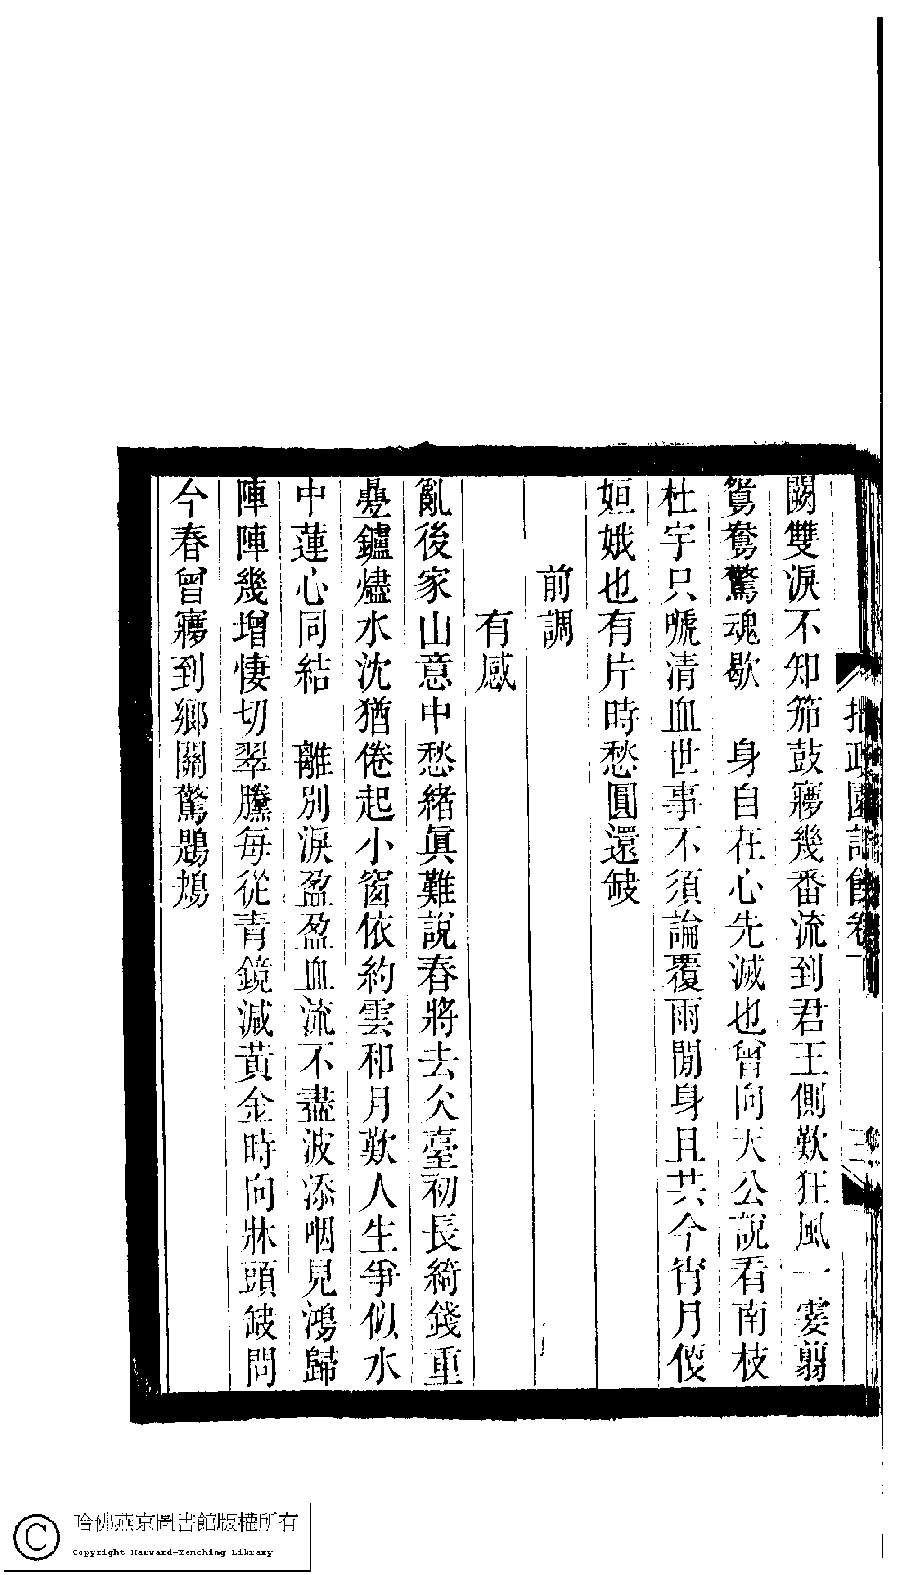 拙政園詩餘卷
三
闕雙淚不知笳鼓㝱幾番流到君王側歎狂風一霎翦
鴛鴦驚魂歇　身自在心先滅也曾向天公說看南枝
杜宇只號清血世事不須論覆雨閒身且共今宵月便
姮娥也有片時愁圓還缺
前調
有感
亂後家山意中愁緒眞難說春將去久臺初長綺錢重
疊鑪燼水沈猶倦起小窗依約雲和月歎人生爭似水
中蓮心同結　離別淚盈盈血流不盡波添咽見鴻歸
陣陣幾增悽切翠騰每從青鏡減黃金時向牀頭缺問
今春曾㝱到鄉關驚鶗鴂
哈佛燕京圖書館版權所有
Copyright Harvard-Yenching Library